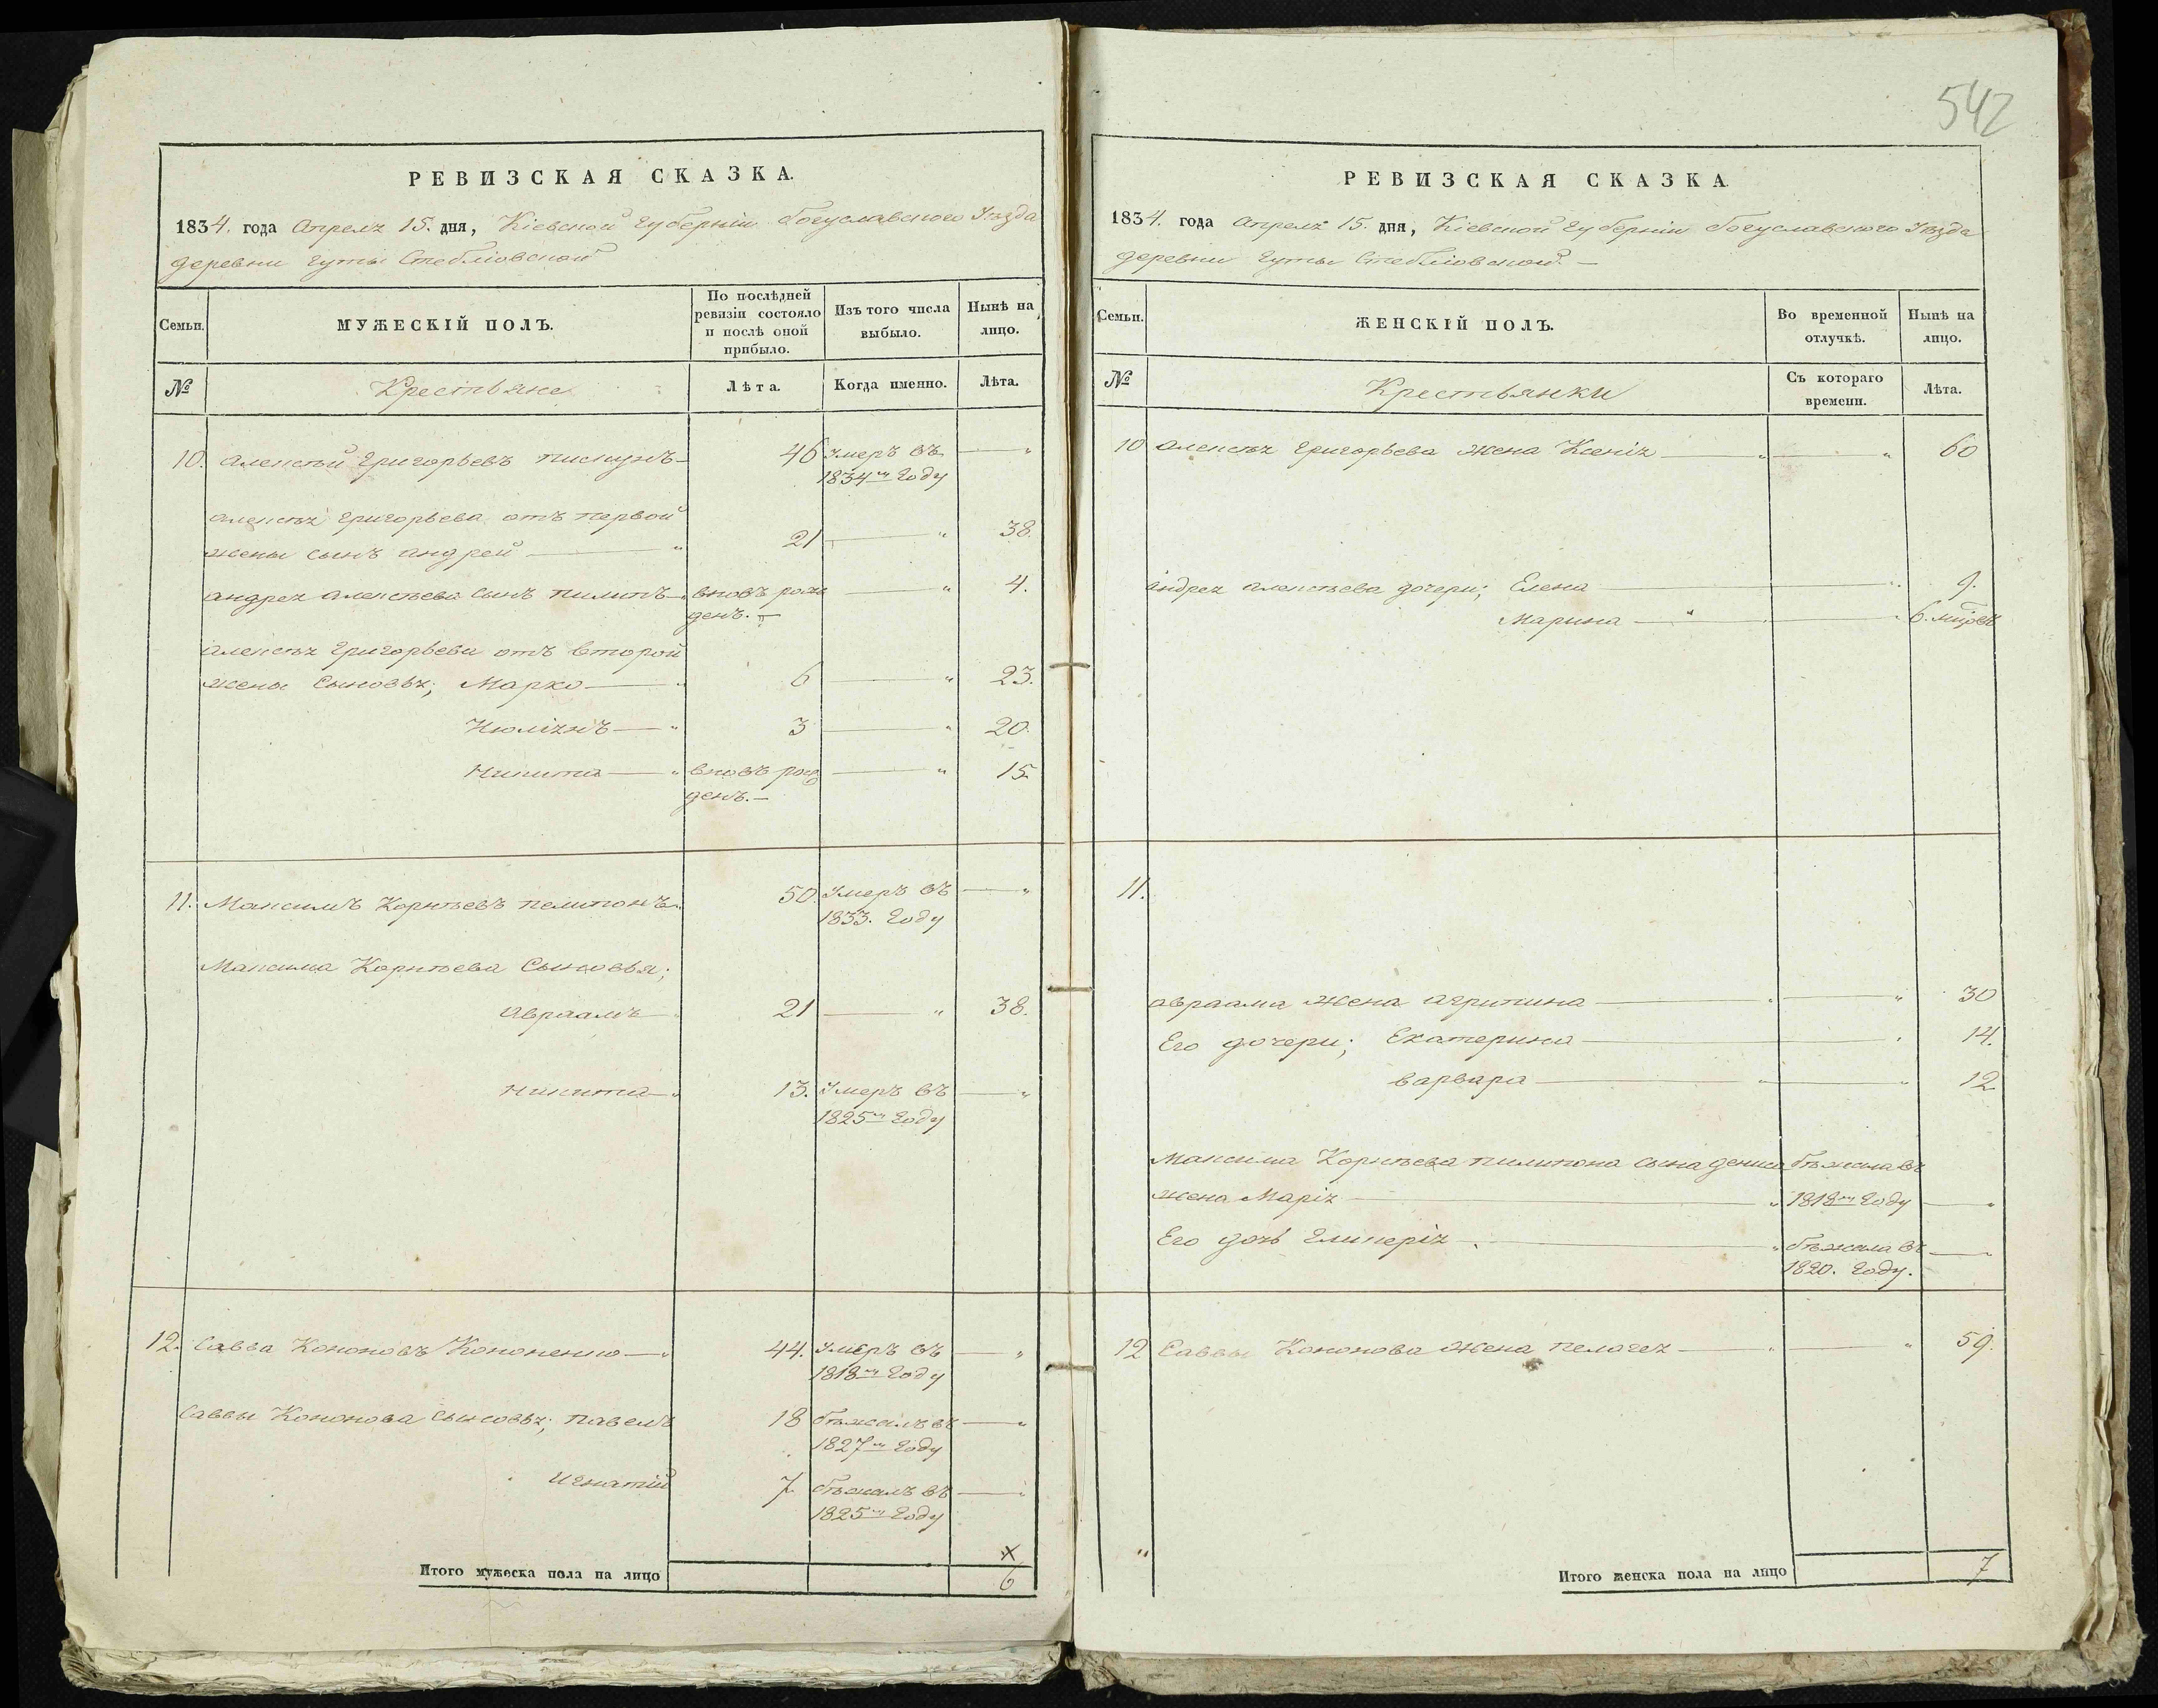 542
РЕВИЗСКАЯ СКАЗКА.
1834. года Апреля 15. дня, Кіевской Губерніи Богуславского Уѣзда
деревни Гуты Стебліовской
Семьи.
МУЖЕСКІЙ ПОЛЪ.
По послѣдней ревизіи состояло и послѣ оной прибыло.
Изъ того числа выбыло.
Нынѣ на лицо.
№
Крестьяне
Лѣта.
Когда именно.
Лѣта.
10. Алексѣй Григорьевъ пискунъ — 46 Умеръ въ — „
1834м Году
Алексѣя Григорьева отъ первой
жены сынъ андрей — „ 21 — „ 38.
андрея Алексѣева сынъ пилипъ — вновь рож — „ 4.
денъ. —
Алексѣя Григорьева отъ второй
жены Сыновья; Марко — „ 6 — „ 23.
Июліянъ — „ 3 — „ 20.
Никита — „ вновь рож — „ 15.
денъ. —
11. Максимъ Корнѣевъ пелипонъ „ 50. Умеръ въ — „
1833. Году
Максима Корнѣева Сыновья;
Авраамъ — „ 21 — „ 38.
Никита — „ 13. Умеръ въ — „
1825м Году
12. Савва Кононовъ Кононенко — „ 44. Умеръ въ — „
1818м Году
Саввы Кононова сыновья; павелъ 18 бѣжалъ въ — „
1827м Году
Игнатій 7 бѣжалъ въ — „
1825м Году
х
Итого мужеска пола на лицо 6
РЕВИЗСКАЯ СКАЗКА
1834. года Апреля 15. дня, Кіевской Губерніи Богуславского Уѣзда
деревни Гуты Стебліовской. —
Семьи.
ЖЕНСКІЙ ПОЛЪ.
Во временной отлучкѣ.
Нынѣ на лицо.
№
Крестьянки
Съ котораго времени.
Лѣта.
10 Алексѣя Григорьева жена Ксенія — „ — „ 60
андрея алексѣева дочери; Елена — „ 9.
Марина — „ — „ 6. мцовъ
11.
авраама жена агрипина — „ — „ 30
Его дочери; Екатерина — „ 14.
варвара — „ — „ 12
Максима Корнѣева пилипона сына дениса бѣжала въ
жена Марія — „ 1818м Году — „
Его дочь Гликерія — „ бѣжала въ — „
1820. Году.
12 Саввы Кононова жена пелагея — „ — „ 59.
„
Итого женска пола на лицо 7